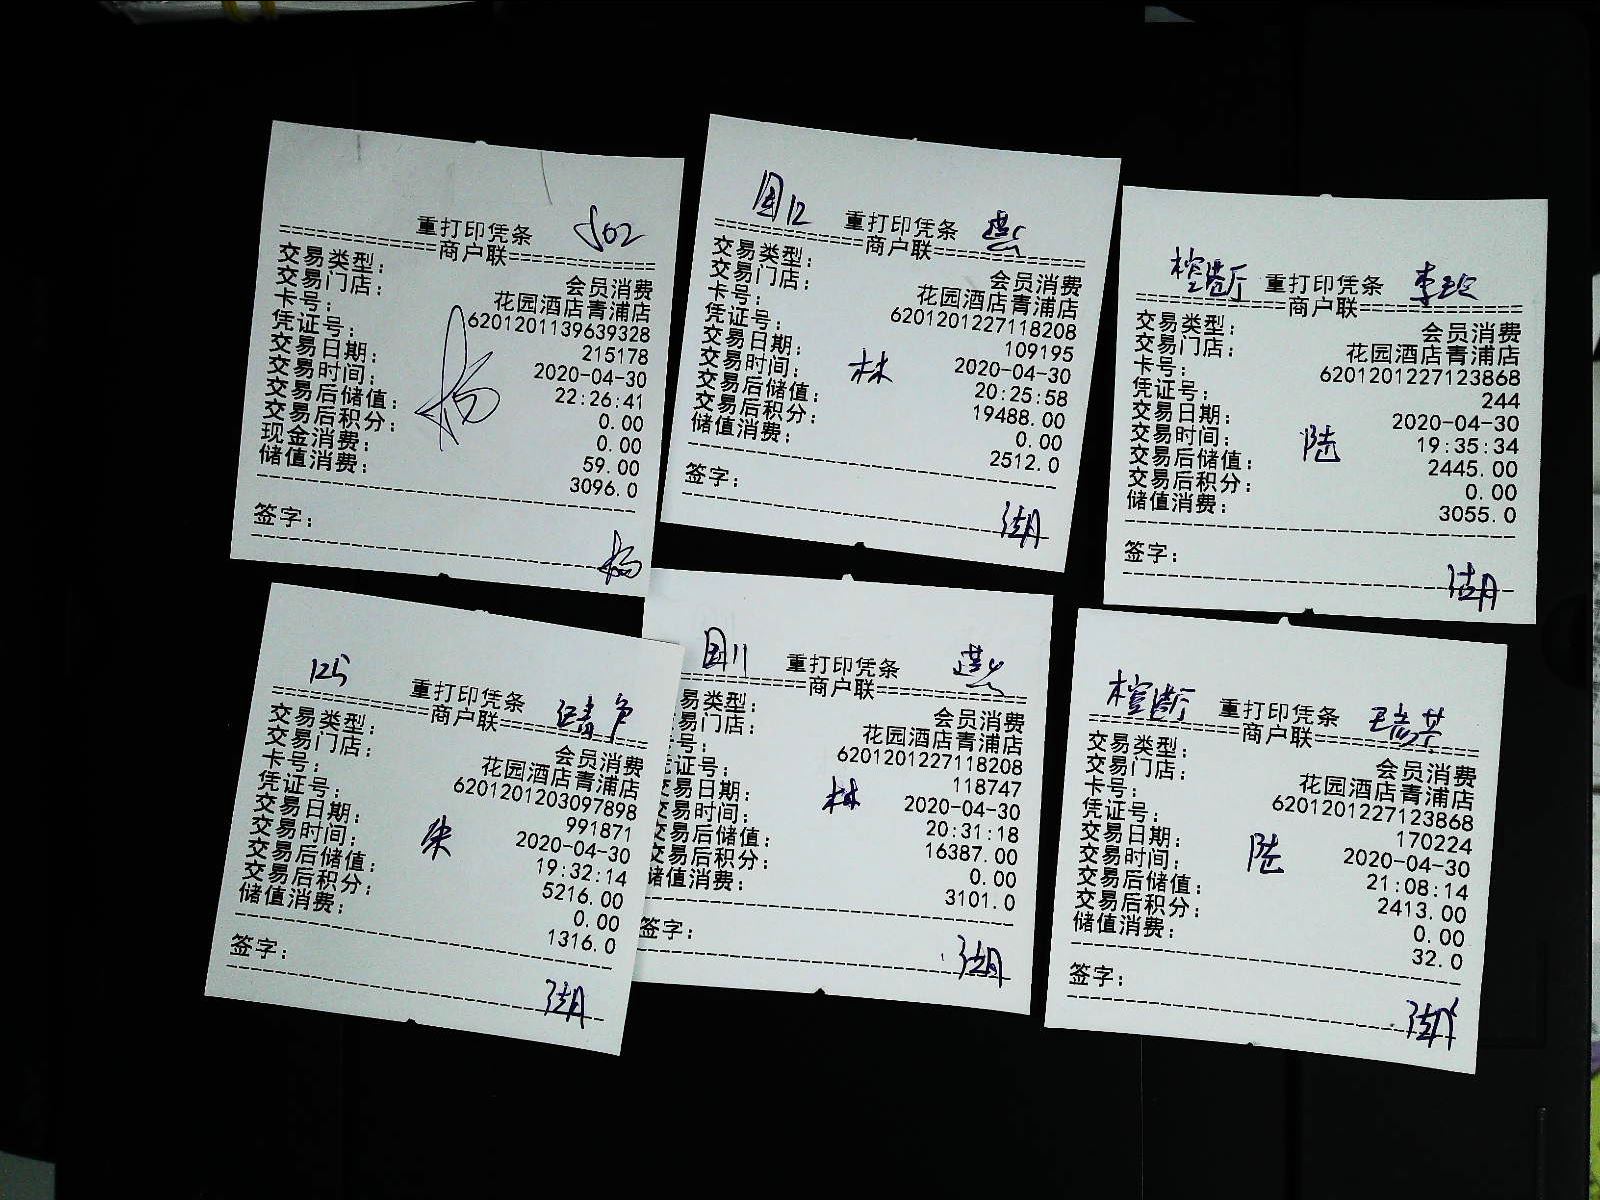 502
重打印凭条
==========商户联==========
交易类型: 会员消费
交易门店: 花园酒店青浦店
卡号: 6201201139639328
凭证号: 215178
交易日期: 2020-04-30
交易时间: 22:26:41
交易后储值: 0.00
交易后积分: 0.00
现金消费: 59.00
储值消费: 3096.0
杨
签字:
杨
国12 重打印凭条 燕
==========商户联==========
交易类型: 会员消费
交易门店: 花园酒店青浦店
卡号: 6201201227118208
凭证号: 109195
交易日期: 2020-04-30
交易时间: 20:25:58
交易后储值: 19488.00
交易后积分: 0.00
储值消费: 2512.0
林
签字:
湖
重打印凭条
==========商户联==========
交易类型: 会员消费
交易门店: 花园酒店青浦店
卡号: 6201201227123868
凭证号: 244
交易日期: 2020-04-30
交易时间: 19:35:34
交易后储值: 2445.00
交易后积分: 0.00
储值消费: 3055.0
陆
签字:
湖
125
重打印凭条
==========商户联==========
交易类型: 会员消费
交易门店: 花园酒店青浦店
卡号: 6201201203097898
凭证号: 991871
交易日期: 2020-04-30
交易时间: 19:32:14
交易后储值: 5216.00
交易后积分: 0.00
储值消费: 1316.0
朱
签字:
湖
国11 重打印凭条 燕
==========商户联==========
易类型: 会员消费
易门店: 花园酒店青浦店
号: 6201201227118208
证号: 118747
易日期: 2020-04-30
易时间: 20:31:18
交易后储值: 16387.00
交易后积分: 0.00
储值消费: 3101.0
林
签字:
湖
重打印凭条
==========商户联==========
交易类型: 会员消费
交易门店: 花园酒店青浦店
卡号: 6201201227123868
凭证号: 170224
交易日期: 2020-04-30
交易时间: 21:08:14
交易后储值: 2413.00
交易后积分: 0.00
储值消费: 32.0
陆
签字:
湖